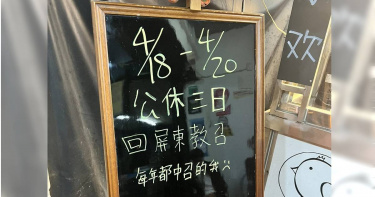 4/18 - 4/20
公休三日
回屏東教召
每年都中召的我
欢